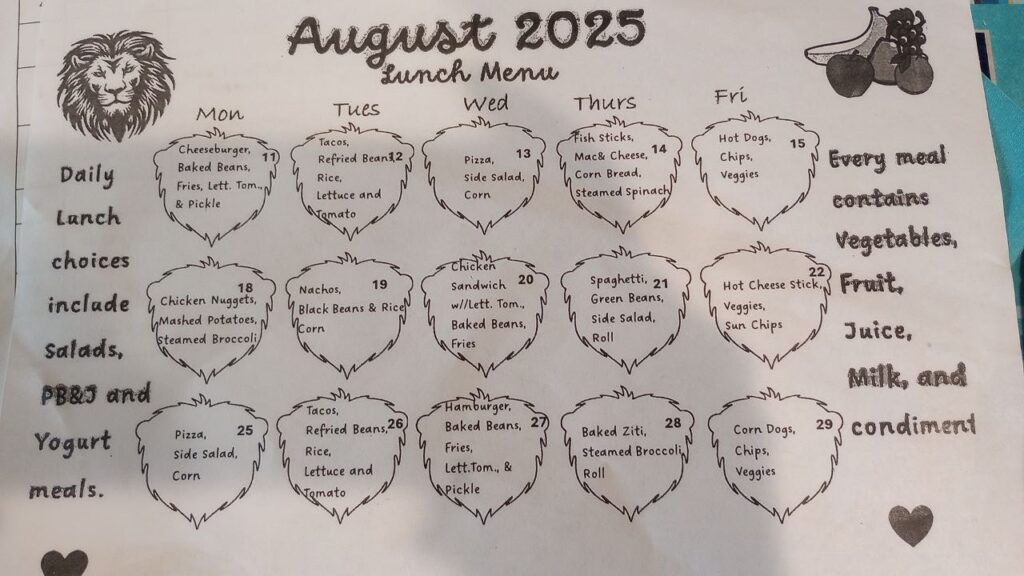 August 2025
Lunch Menu
Mon
Tues
Wed
Thurs
Fri
Daily
Lunch
choices
include
Salads,
PB&J and
Yogurt
meals.
Cheeseburger,
11
Baked Beans,
Fries, Lett. Tom.,
& Pickle
Tacos,
Refried Beans,
12
Rice,
Lettuce and
Tomato
13
Pizza,
Side Salad,
Corn
Fish Sticks,
14
Mac& Cheese,
Corn Bread,
Steamed Spinach
Hot Dogs,
15
Chips,
Veggies
18
Chicken Nuggets,
Mashed Potatoes,
Steamed Broccoli
19
Nachos,
Black Beans & Rice
Corn
Chicken
20
Sandwich
w//Lett. Tom.,
Baked Beans,
Fries
Spaghetti,
21
Green Beans,
Side Salad,
Roll
22
Hot Cheese Stick,
Veggies,
Sun Chips
25
Pizza,
Side Salad,
Corn
Tacos,
26
Refried Beans,
Rice,
Lettuce and
Tomato
Hamburger,
27
Baked Beans,
Fries,
Lett.Tom., &
Pickle
28
Baked Ziti,
Steamed Broccoli
Roll
29
Corn Dogs,
Chips,
Veggies
Every meal
contains
Vegetables,
Fruit,
Juice,
Milk, and
condiment